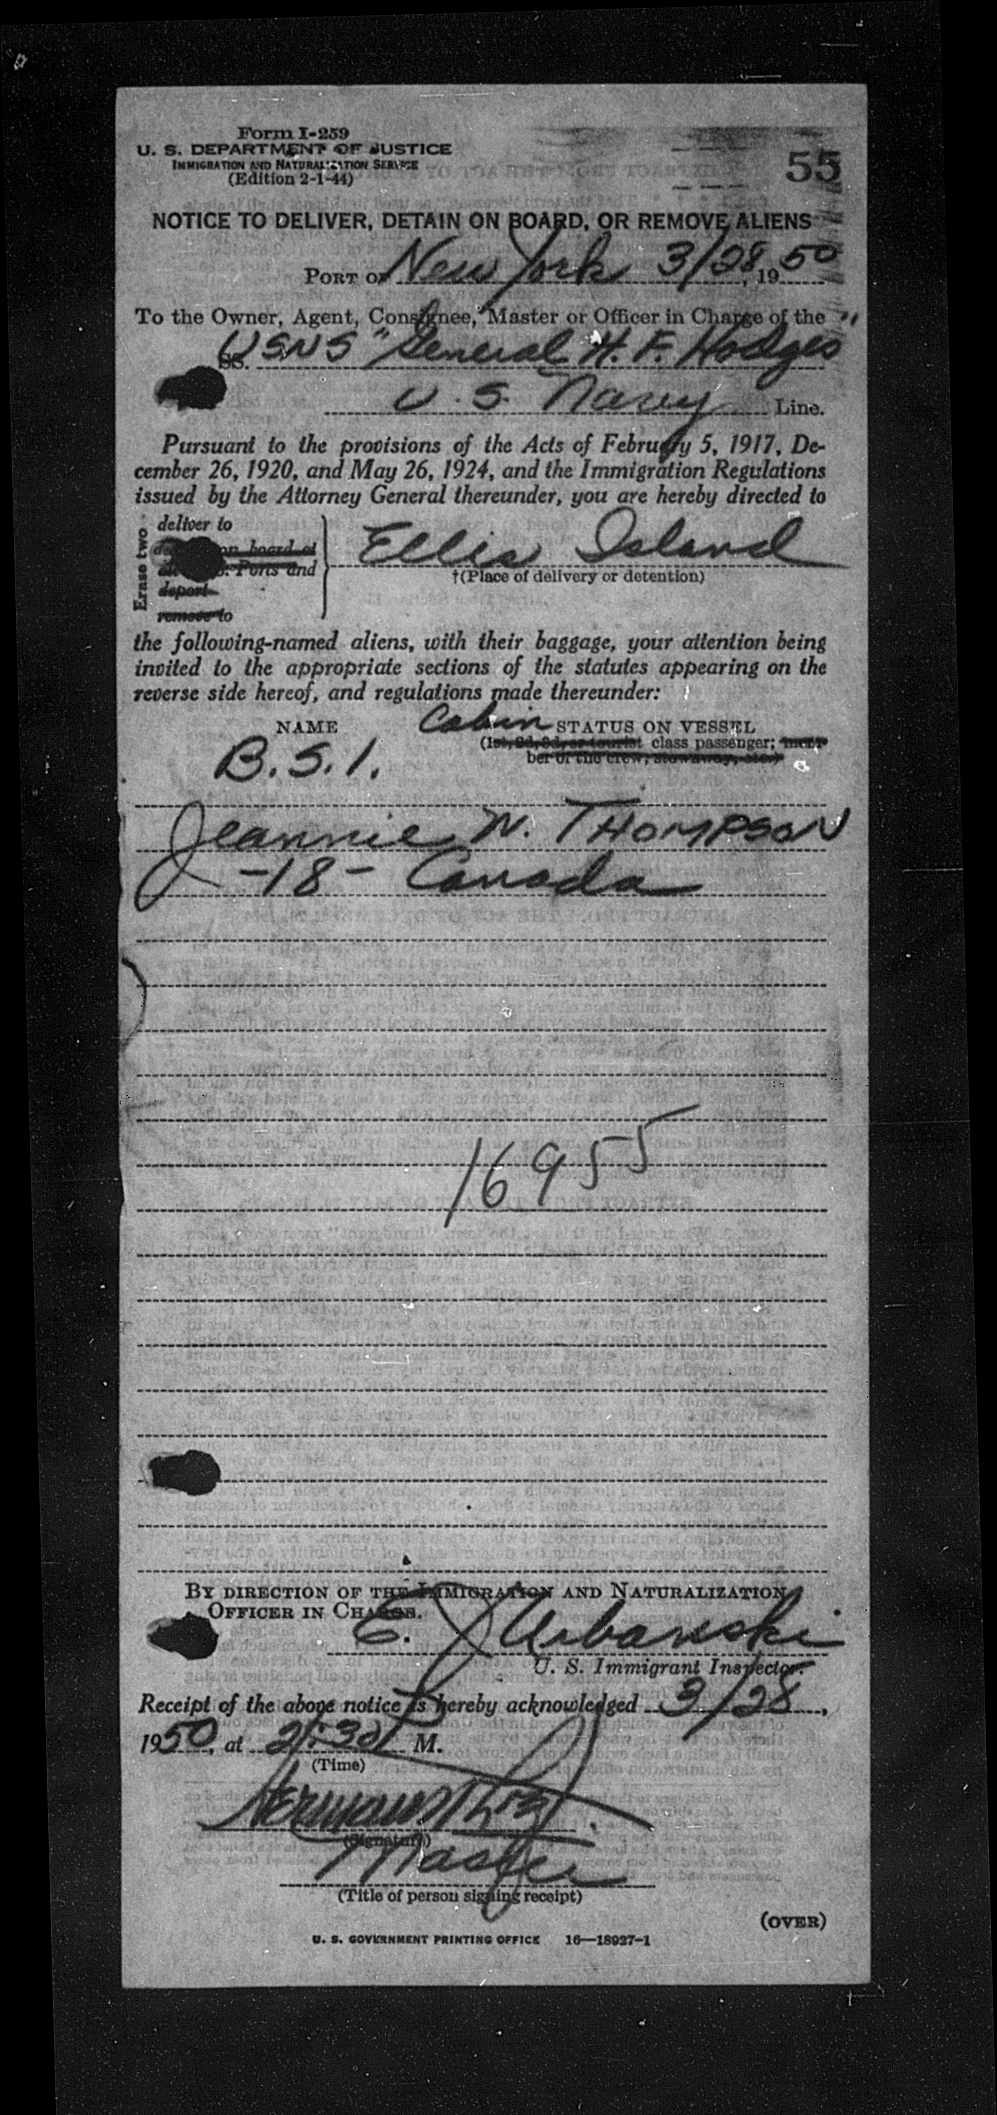 Form I-259
U. S. DEPARTMENT OF JUSTICE
IMMIGRATION AND NATURALIZATION SERVICE
(Edition 2-1-44)
55
NOTICE TO DELIVER, DETAIN ON BOARD, OR REMOVE ALIENS
PORT OF New York 3/28, 1950
To the Owner, Agent, Consignee, Master or Officer in Charge of the
SS. USNS "General H. F. Hodges"
U. S. Navy Line.
Pursuant to the provisions of the Acts of February 5, 1917, De-
cember 26, 1920, and May 26, 1924, and the Immigration Regulations
issued by the Attorney General thereunder, you are hereby directed to
Erase two
deliver to
on board at
Ports and
deport
remove to
Ellis Island
†(Place of delivery or detention)
the following-named aliens, with their baggage, your attention being
invited to the appropriate sections of the statutes appearing on the
reverse side hereof, and regulations made thereunder:
NAME Cabin STATUS ON VESSEL
(1st, 2d, 3d, or tourist class passenger; mem-
ber of the crew, stowaway, etc.)
B.S.I.
Jeannie W. THOMPSON
-18- Canada
16955
BY DIRECTION OF THE IMMIGRATION AND NATURALIZATION
OFFICER IN CHARGE.
E. J. Urbanski
U. S. Immigrant Inspector.
Receipt of the above notice is hereby acknowledged 3/28,
1950, at 2:30 M.
(Time)
(Signature)
Master
(Title of person signing receipt)
(OVER)
U. S. GOVERNMENT PRINTING OFFICE 16—18927-1